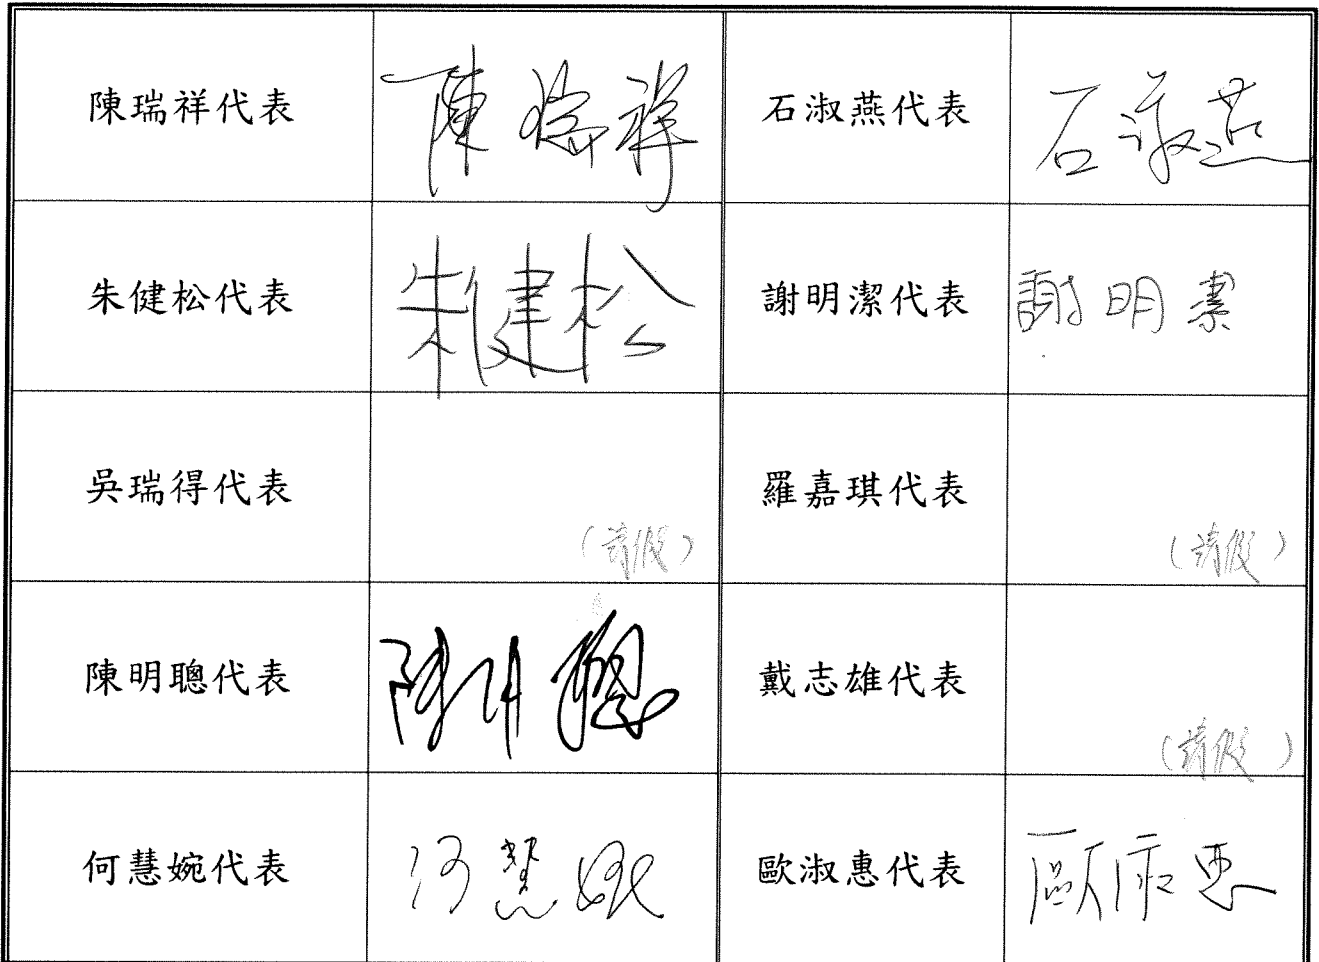 陳瑞祥代表 陳瑞祥 石淑燕代表 石淑燕
朱健松代表 朱健松 謝明潔代表 謝明潔
吳瑞得代表 (請假) 羅嘉琪代表 (請假)
陳明聰代表 陳明聰 戴志雄代表 (請假)
何慧婉代表 何慧婉 歐淑惠代表 歐淑惠